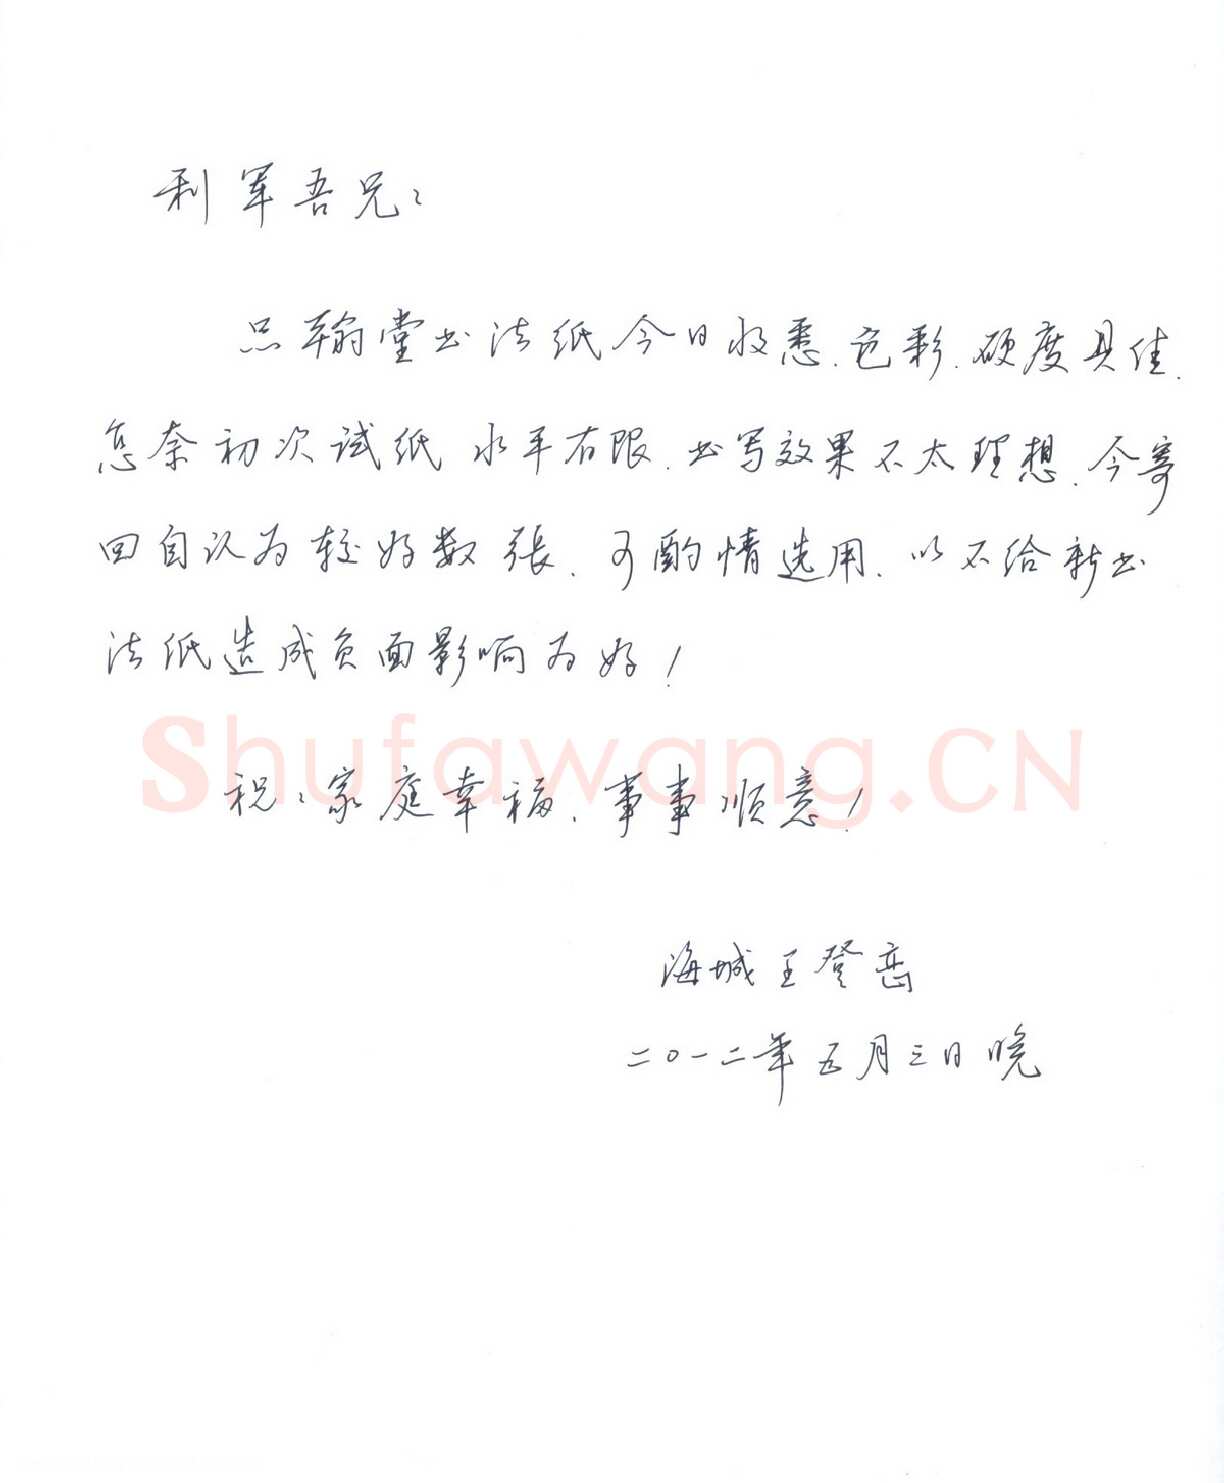 利军吾兄：
品翰堂书法纸今日收悉.色彩.硬度具佳.
怎奈初次试纸 水平有限.书写效果不太理想.今寄
回自认为较好数张.可酌情选用.以不给新书
法纸造成负面影响为好！
Shufawang.CN
祝：家庭幸福.事事顺意！
海城王登峦
二〇一二年五月三日晚